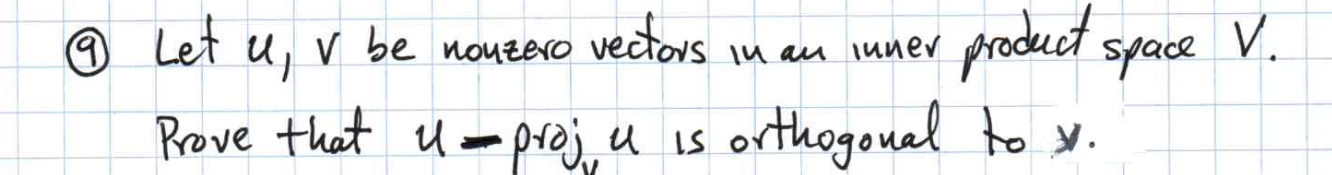 ⑨ Let u, v be nonzero vectors in an inner product space V.
Prove that u - proj_v u is orthogonal to v.